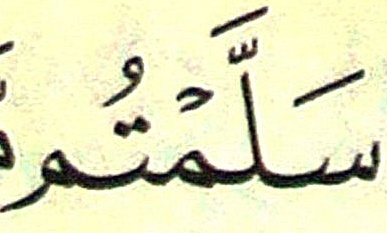 سَلَّمۡتُم